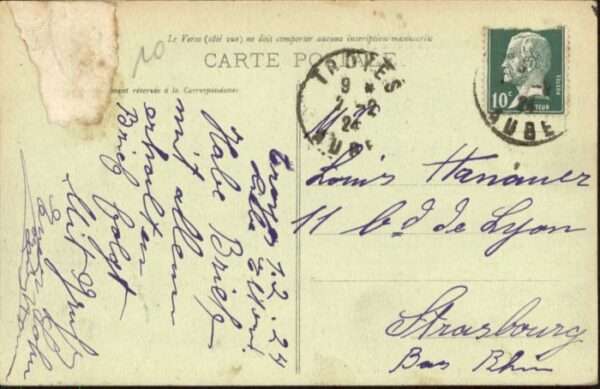 Le Verso (côté vue) ne doit comporter aucune inscription manuscrite
CARTE POSTALE
réservée à la Correspondance
10
TROYES
9 *
7-2
24
AUBE
10c
POSTES
AUBE
Troyes 7.2.24
Habe Brief
mit allem
erhalten
Brief folgt
Mit Gruß
Louis Hanauer
11 bd de Lyon
Strasbourg
Bas Rhin